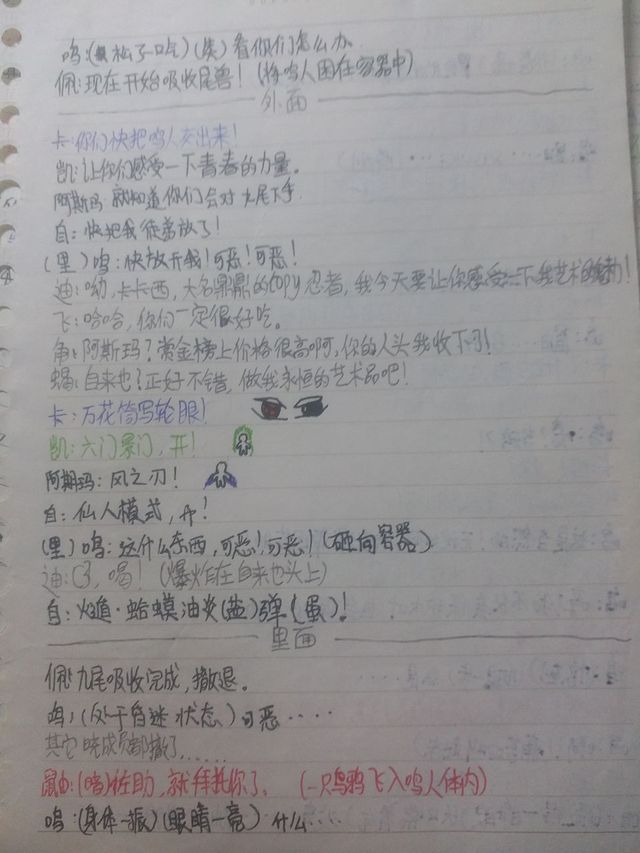 鸣:(松了一口气)(笑)看你们怎么办。
佩:现在开始吸收尾兽!(将鸣人困在容器中)
外面
卡:你们快把鸣人交出来!
凯:让你们感受一下青春的力量。
阿斯玛:就知道你们会对九尾下手.
自:快把我徒弟放了!
(里)鸣:快放开我!可恶!可恶!
迪:呦,卡卡西,大名鼎鼎的copy忍者,我今天要让你感受一下我艺术的魅力!
飞:哈哈,你们一定很好吃。
角:阿斯玛?赏金榜上价格很高啊,你的人头我收下了!
蝎:自来也?正好不错,做我永恒的艺术品吧!
卡:万花筒写轮眼!
凯:六门景门,开!
阿斯玛:风之刃!
自:仙人模式,开!
(里)鸣:这什么东西,可恶!可恶!(砸向容器)
迪:C3,喝!(爆炸在自来也头上)
自:火遁·蛤蟆油炎(盐)弹(蛋)!
里面
佩:九尾吸收完成,撤退。
鸣:(处于昏迷状态)可恶····
其它晓成员都撤了......
鼬:(暗)佐助,就拜托你了。(一只乌鸦飞入鸣人体内)
鸣:(身体一振)(眼睛一亮)什么..